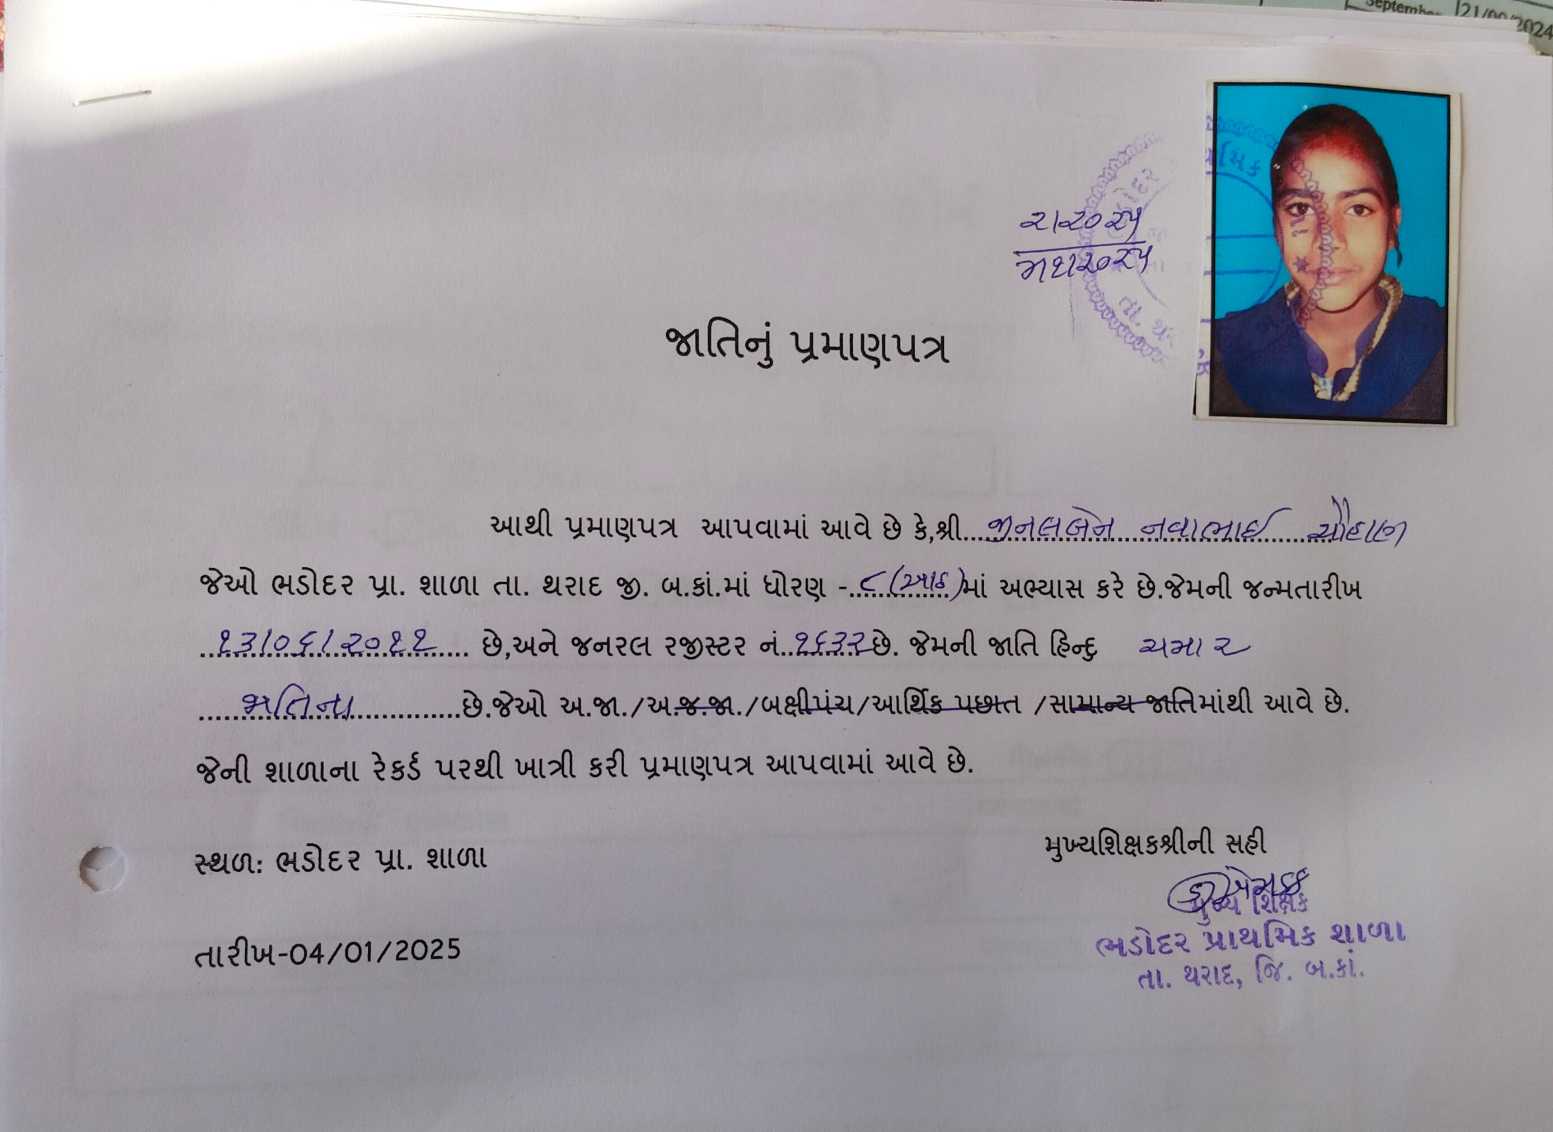 September 21/09/2024
જાતિનું પ્રમાણપત્ર
આથી પ્રમાણપત્ર આપવામાં આવે છે કે,શ્રી....જીનલબેન નવાભાઈ ચૌહાણ
જેઓ ભડોદર પ્રા. શાળા તા. થરાદ જી. બ.કાં.માં ધોરણ -..૮(આઠ)માં અભ્યાસ કરે છે.જેમની જન્મતારીખ
..૧૩/૦૬/૨૦૧૧.... છે,અને જનરલ રજીસ્ટર નં..૧૬૩૨છે. જેમની જાતિ હિન્દુ ચમાર
......જાતિના............છે.જેઓ અ.જા./અ.જ.જા./બક્ષીપંચ/આર્થિક પછાત /સામાન્ય જાતિમાંથી આવે છે.
જેની શાળાના રેકર્ડ પરથી ખાત્રી કરી પ્રમાણપત્ર આપવામાં આવે છે.
સ્થળ: ભડોદર પ્રા. શાળા
મુખ્યશિક્ષકશ્રીની સહી
મુખ્ય શિક્ષક
ભડોદર પ્રાથમિક શાળા
તા. થરાદ, જિ. બ.કાં.
તારીખ-04/01/2025